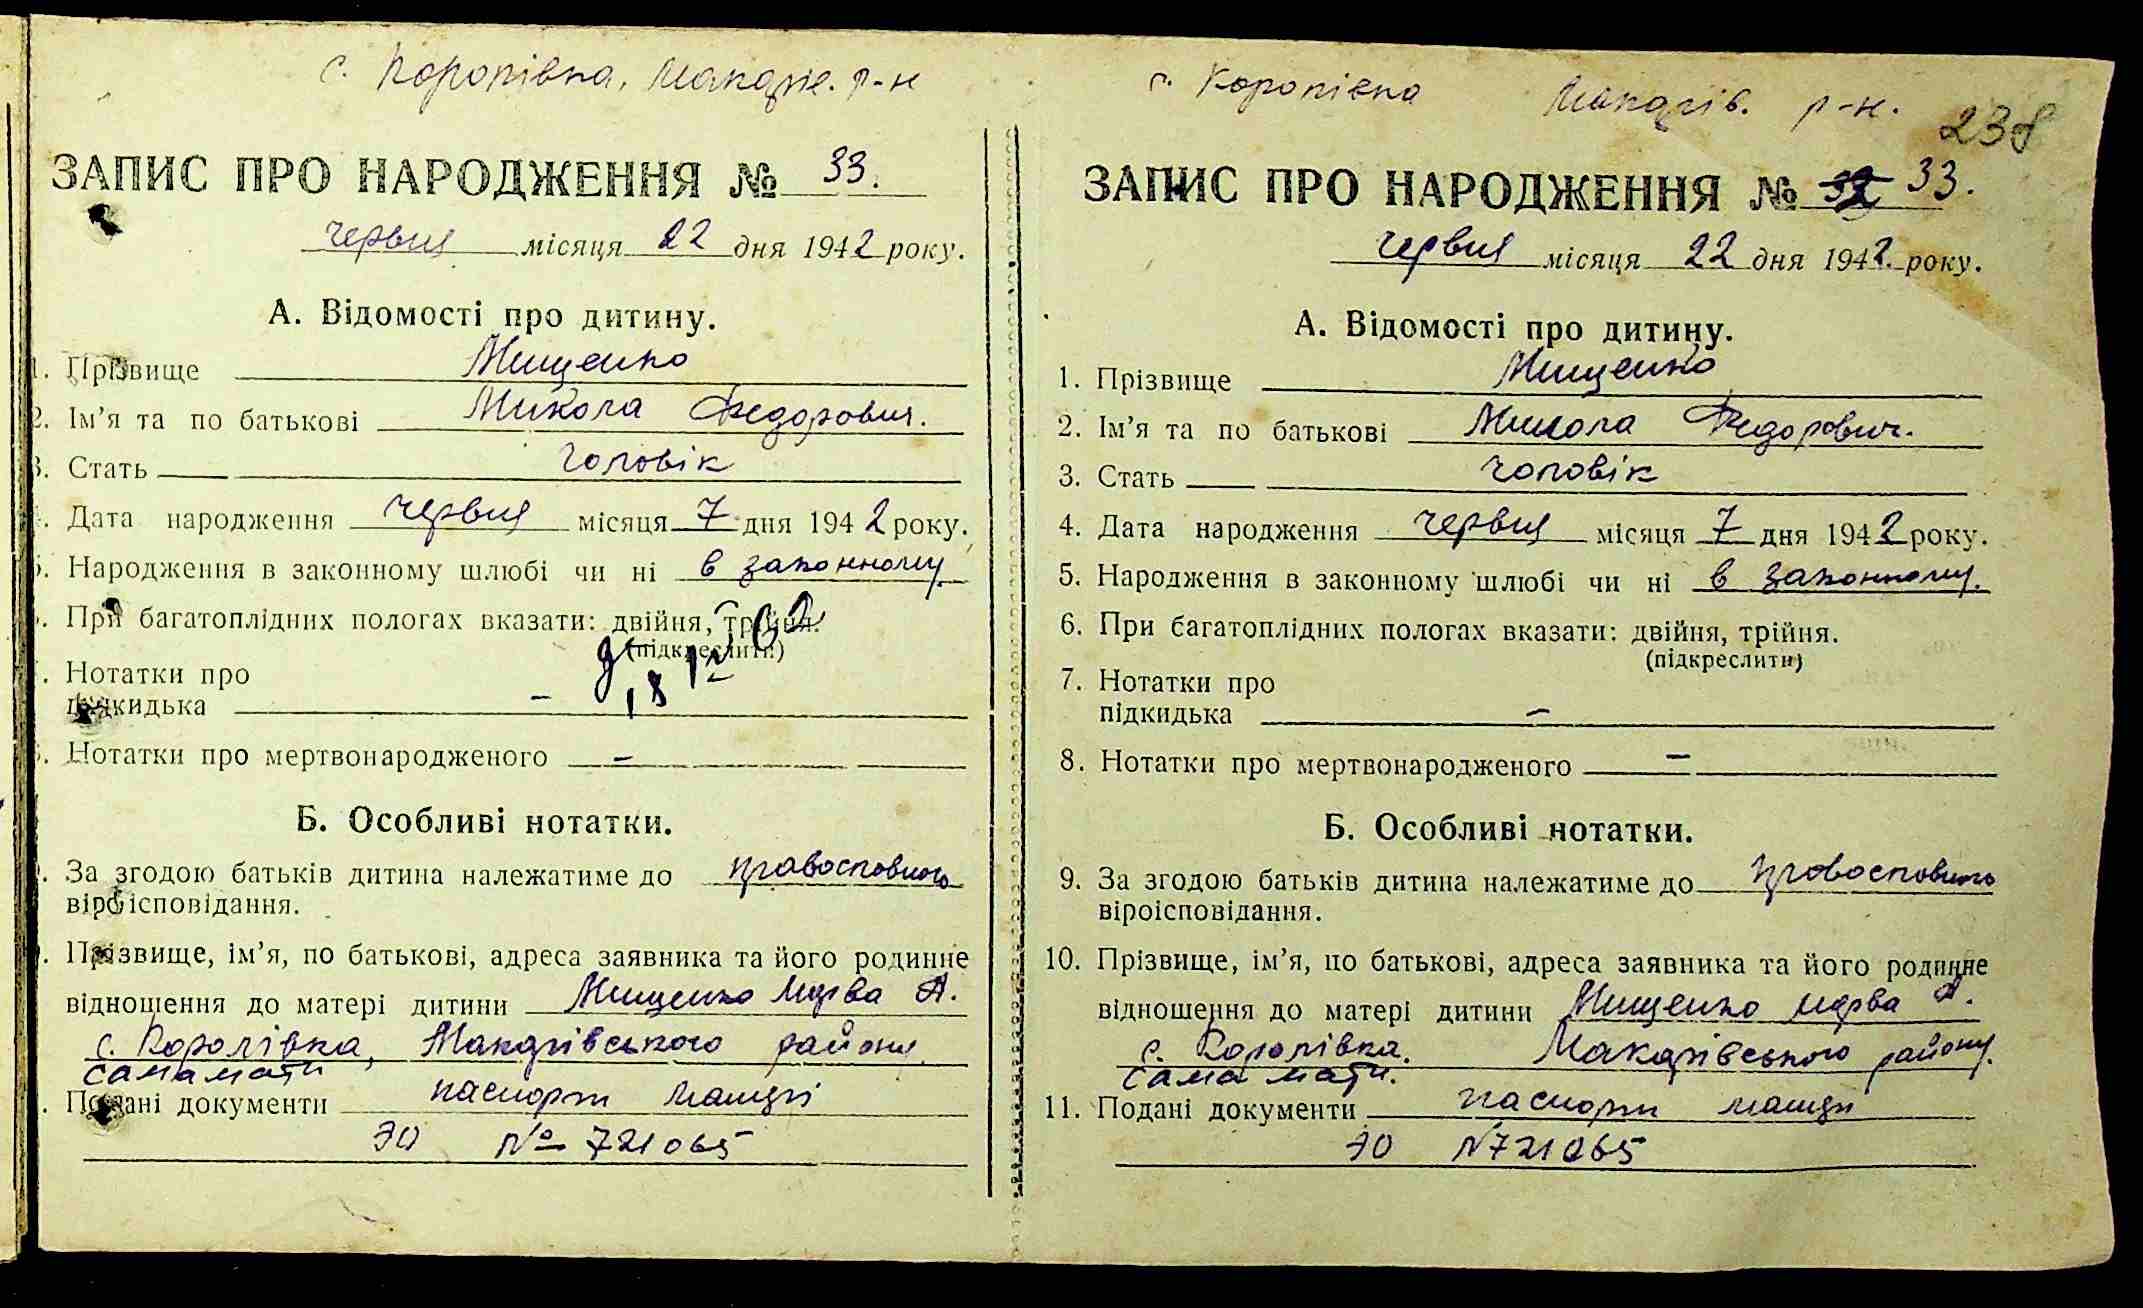 с. Королівка, Макарів. р-н
ЗАПИС ПРО НАРОДЖЕННЯ № 33.
червня місяця 22 дня 1942 року.
А. Відомості про дитину.
1. Прізвище Мищенко
2. Ім'я та по батькові Микола Федорович.
3. Стать чоловік
4. Дата народження червня місяця 7 дня 1942 року.
5. Народження в законному шлюбі чи ні в законному
6. При багатоплідних пологах вказати: двійня, трійня.
(підкреслити)
7. Нотатки про
підкидька –
8. Нотатки про мертвонародженого –
Б. Особливі нотатки.
9. За згодою батьків дитина належатиме до православного
віроісповідання.
10. Прізвище, ім'я, по батькові, адреса заявника та його родинне
відношення до матері дитини Мищенко А.
с. Королівка, Макарівського району
сама мати
11. Подані документи паспорт
№ 721065
с. Королівка Макарів. р-н.
238
ЗАПИС ПРО НАРОДЖЕННЯ № 32 33.
червня місяця 22 дня 1942 року.
А. Відомості про дитину.
1. Прізвище Мищенко
2. Ім'я та по батькові Микола Федорович.
3. Стать чоловік
4. Дата народження червня місяця 7 дня 1942 року.
5. Народження в законному шлюбі чи ні в законному.
6. При багатоплідних пологах вказати: двійня, трійня.
(підкреслити)
7. Нотатки про
підкидька –
8. Нотатки про мертвонародженого –
Б. Особливі нотатки.
9. За згодою батьків дитина належатиме до православного
віроісповідання.
10. Прізвище, ім'я, по батькові, адреса заявника та його родинне
відношення до матері дитини Мищенко А.
с. Королівка. Макарівського району.
сама мати.
11. Подані документи паспорт
N721065